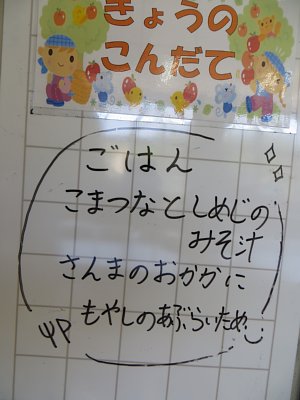 きょうの
こんだて
ごはん
こまつなとしめじの
みそ汁
さんまのおかかに
もやしのあぶらいため